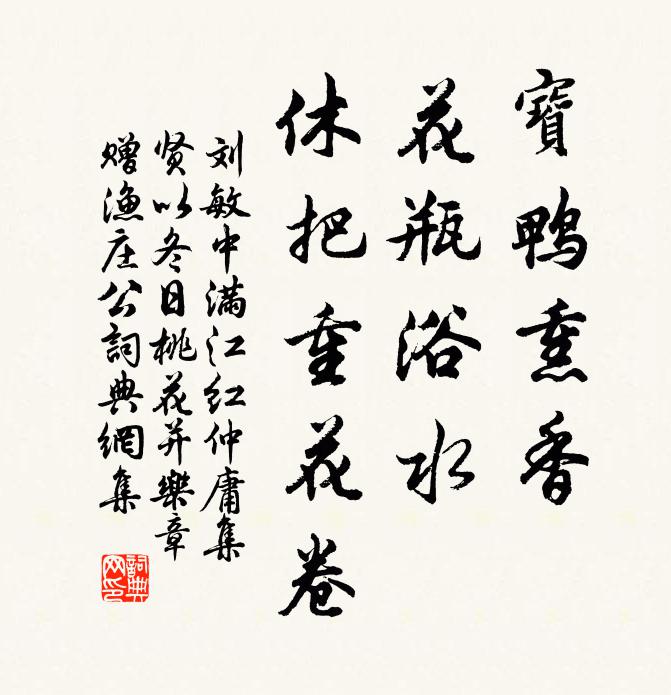 寶鴨熏香
花瓶浴水
休把重花卷
刘敏中满江红仲庸集
贤以冬日桃花并樂章
赠漁庄公詞典網集
詞典网印